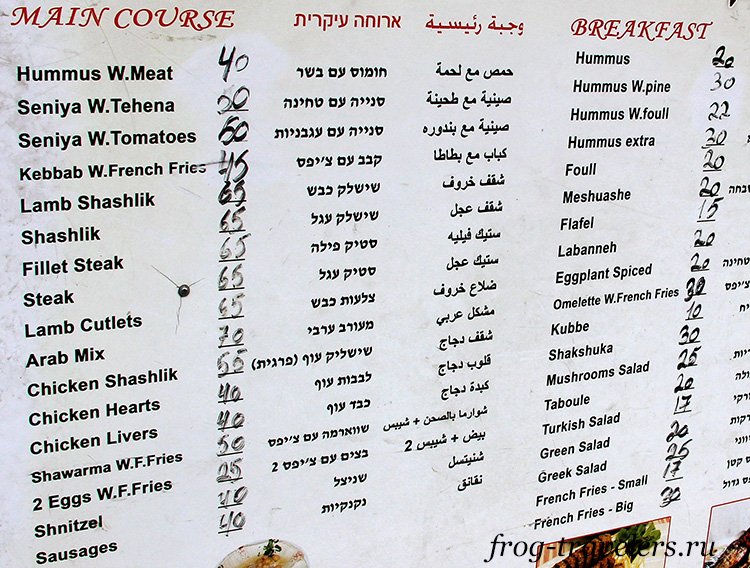 MAIN COURSE ארוחה עיקרית وجبة رئيسية
Hummus W.Meat 40 חומוס עם בשר حمص مع لحمة
Seniya W.Tehena סנייה עם טחינה صينية مع طحينة
Seniya W.Tomatoes 50 סנייה עם עגבניות صينية مع بندوره
Kebbab W.French Fries 45 קבב עם צ'יפס كباب مع بطاطا
Lamb Shashlik 65 שישלק כבש شقف خروف
Shashlik 65 שישלק עגל شقف عجل
Fillet Steak 65 סטיק פילה ستيك فيليه
Steak 65 סטיק עגל ستيك عجل
Lamb Cutlets 65 צלעות כבש ضلاع خروف
Arab Mix 70 מעורב ערבי مشكل عربي
Chicken Shashlik 55 שישליק עוף (פרגית) شقف دجاج
Chicken Hearts 40 לבבות עוף قلوب دجاج
Chicken Livers 40 כבד עוף كبدة دجاج
Shawarma W.F.Fries 50 שווארמה עם צ'יפס شوارما بالصحن + شيبس
2 Eggs W.F.Fries 25 בצים עם צ'יפס 2 بيض + شيبس 2
Shnitzel 40 שניצל شنيتسل
Sausages 40 נקנקיות نقانق
BREAKFAST
Hummus 20
Hummus W.pine 30
Hummus W.foull 22
Hummus extra 30
Foull 20
Meshuashe 20
Flafel 15
Labanneh 20
Eggplant Spiced 20 טחינה
Omelette W.French Fries 30
Kubbe 10
Shakshuka 30
Mushrooms Salad 25
Taboule 20
Turkish Salad 17
Green Salad 20
Greek Salad 25
French Fries - Small 17
French Fries - Big 30
frog-travelers.ru